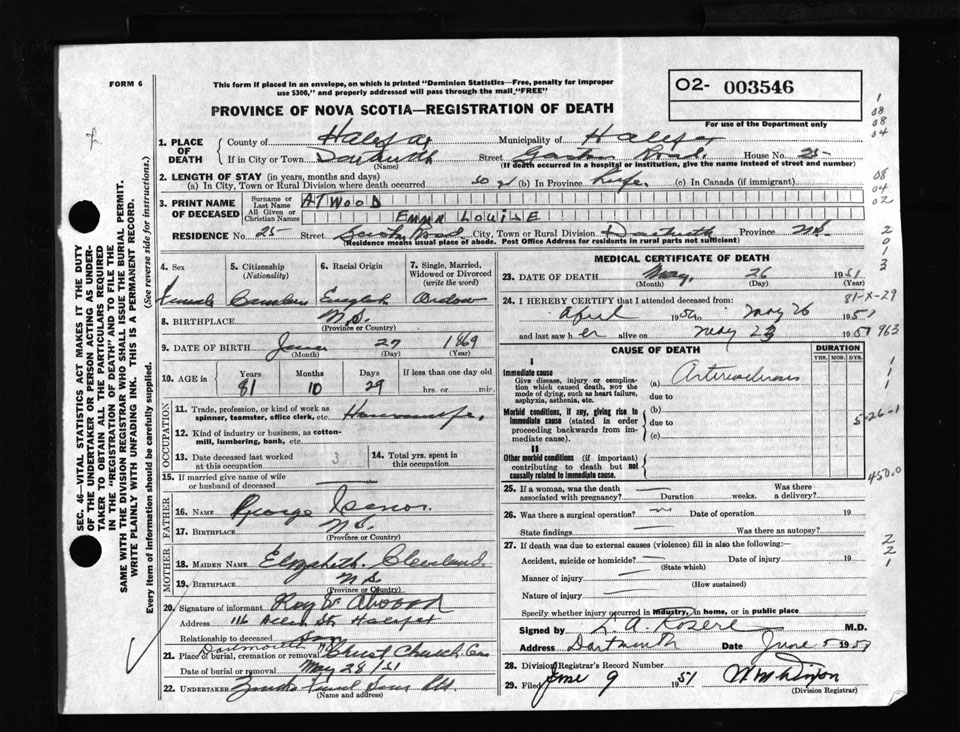 FORM 6
This form if placed in an envelope, on which is printed "Dominion Statistics—Free, penalty for improper
use $300," and properly addressed will pass through the mail "FREE"
O2- 003546
For use of the Department only
PROVINCE OF NOVA SCOTIA—REGISTRATION OF DEATH
1. PLACE OF DEATH
County of Halifax Municipality of Halifax
If in City or Town Dartmouth Street Road. House No. 25
(Name) (If death occurred in a hospital or institution, give the name instead of street and number)
2. LENGTH OF STAY (in years, months and days)
(a) In City, Town or Rural Division where death occurred 50 y (b) In Province Life. (c) In Canada (if immigrant)
3. PRINT NAME OF DECEASED
Surname or Last Name ATWOOD
All Given or Christian Names EMMA LOUISE
RESIDENCE No. 25 Street Road City, Town or Rural Division Dartmouth Province N.S.
(Residence means usual place of abode. Post Office Address for residents in rural parts not sufficient)
4. Sex 5. Citizenship (Nationality) 6. Racial Origin 7. Single, Married, Widowed or Divorced (write the word)
Female Canadian English Widow
8. BIRTHPLACE N.S.
(Province or Country)
9. DATE OF BIRTH June 27 1869
(Month) (Day) (Year)
10. AGE in Years Months Days If less than one day old
81 10 29 hrs. or min.
OCCUPATION
11. Trade, profession, or kind of work as spinner, teamster, office clerk, etc. Housewife.
12. Kind of industry or business, as cotton-mill, lumbering, bank, etc.
13. Date deceased last worked at this occupation 3 14. Total yrs. spent in this occupation
15. If married give name of wife or husband of deceased
FATHER
16. NAME George Isnor.
17. BIRTHPLACE N.S.
(Province or Country)
MOTHER
18. MAIDEN NAME Elizabeth Cleveland.
19. BIRTHPLACE N S
(Province or Country)
20. Signature of informant Roy Atwood
Address 116 Allen St. Halifax
Relationship to deceased Son
Dartmouth
21. Place of burial, cremation or removal Christ Church Cem
Date of burial or removal May 28/51
22. UNDERTAKER
(Name and address)
MEDICAL CERTIFICATE OF DEATH
23. DATE OF DEATH May, 26 1951
(Month) (Day) (Year)
81-X-29
24. I HEREBY CERTIFY that I attended deceased from:
April 1950 to May 26 1951
and last saw her alive on May 23 1951
963
CAUSE OF DEATH
DURATION
YRS. MOS. DYS.
I
Immediate cause
Give disease, injury or complication which caused death, NOT the mode of dying, such as heart failure, asphyxia, asthenia, etc.
(a) Arteriosclerosis
due to
Morbid conditions, if any, giving rise to immediate cause (stated in order proceeding backwards from immediate cause).
(b)
due to
(c)
5-26-1
II
Other morbid conditions (if important) contributing to death but not causally related to immediate cause.
450.0
25. If a woman, was the death associated with pregnancy? Duration weeks. Was there a delivery?
26. Was there a surgical operation? Date of operation 19
State findings Was there an autopsy?
27. If death was due to external causes (violence) fill in also the following:
Accident, suicide or homicide? Date of injury 19
(State which)
Manner of injury
(How sustained)
Nature of injury
Specify whether injury occurred in industry, in home, or in public place
Signed by A. Rosere M.D.
Address Dartmouth Date June 5 1951
28. Division Registrar's Record Number
29. Filed June 9 1951
(Division Registrar)
SEC. 46—VITAL STATISTICS ACT MAKES IT THE DUTY
OF THE UNDERTAKER OR PERSON ACTING AS UNDER-
TAKER TO OBTAIN ALL THE PARTICULARS REQUIRED
IN THE "REGISTRATION OF DEATH" AND TO FILE THE
SAME WITH THE DIVISION REGISTRAR WHO SHALL ISSUE THE BURIAL PERMIT.
WRITE PLAINLY WITH UNFADING INK. THIS IS A PERMANENT RECORD.
Every item of information should be carefully supplied. (See reverse side for instructions.)
1
08
08
04
08
04
02
2
0
1
3
1
1
1
2
2
1